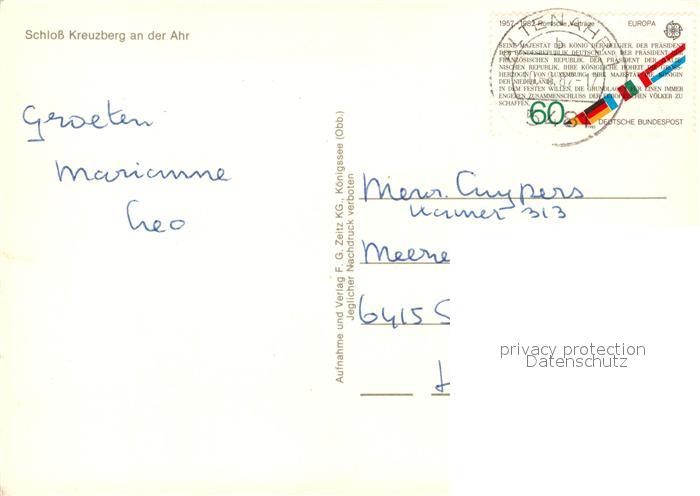 Schloß Kreuzberg an der Ahr
Groeten
Marianne
Leo
Aufnahme und Verlag F. G. Zeitz KG., Königssee (Obb.)
Jeglicher Nachdruck verboten
1957-1982 Römische Verträge EUROPA
SEINE MAJESTÄT DER KÖNIG DER BELGIER, DER PRÄSIDENT
DER BUNDESREPUBLIK DEUTSCHLAND, DER PRÄSIDENT DER
FRANZÖSISCHEN REPUBLIK, DER PRÄSIDENT DER ITALIENISCHEN
REPUBLIK, IHRE KÖNIGLICHE HOHEIT DIE GROSS-
HERZOGIN VON LUXEMBURG, IHRE MAJESTÄT DIE KÖNIGIN
DER NIEDERLANDE
IN DEM FESTEN WILLEN, DIE GRUNDLAGEN FÜR EINEN IMMER
ENGEREN ZUSAMMENSCHLUSS DER EUROPÄISCHEN VÖLKER ZU
SCHAFFEN
60
DEUTSCHE BUNDESPOST
Mevr. Cuypers
Kamer 313
Meerse
6415 S
privacy protection
Datenschutz